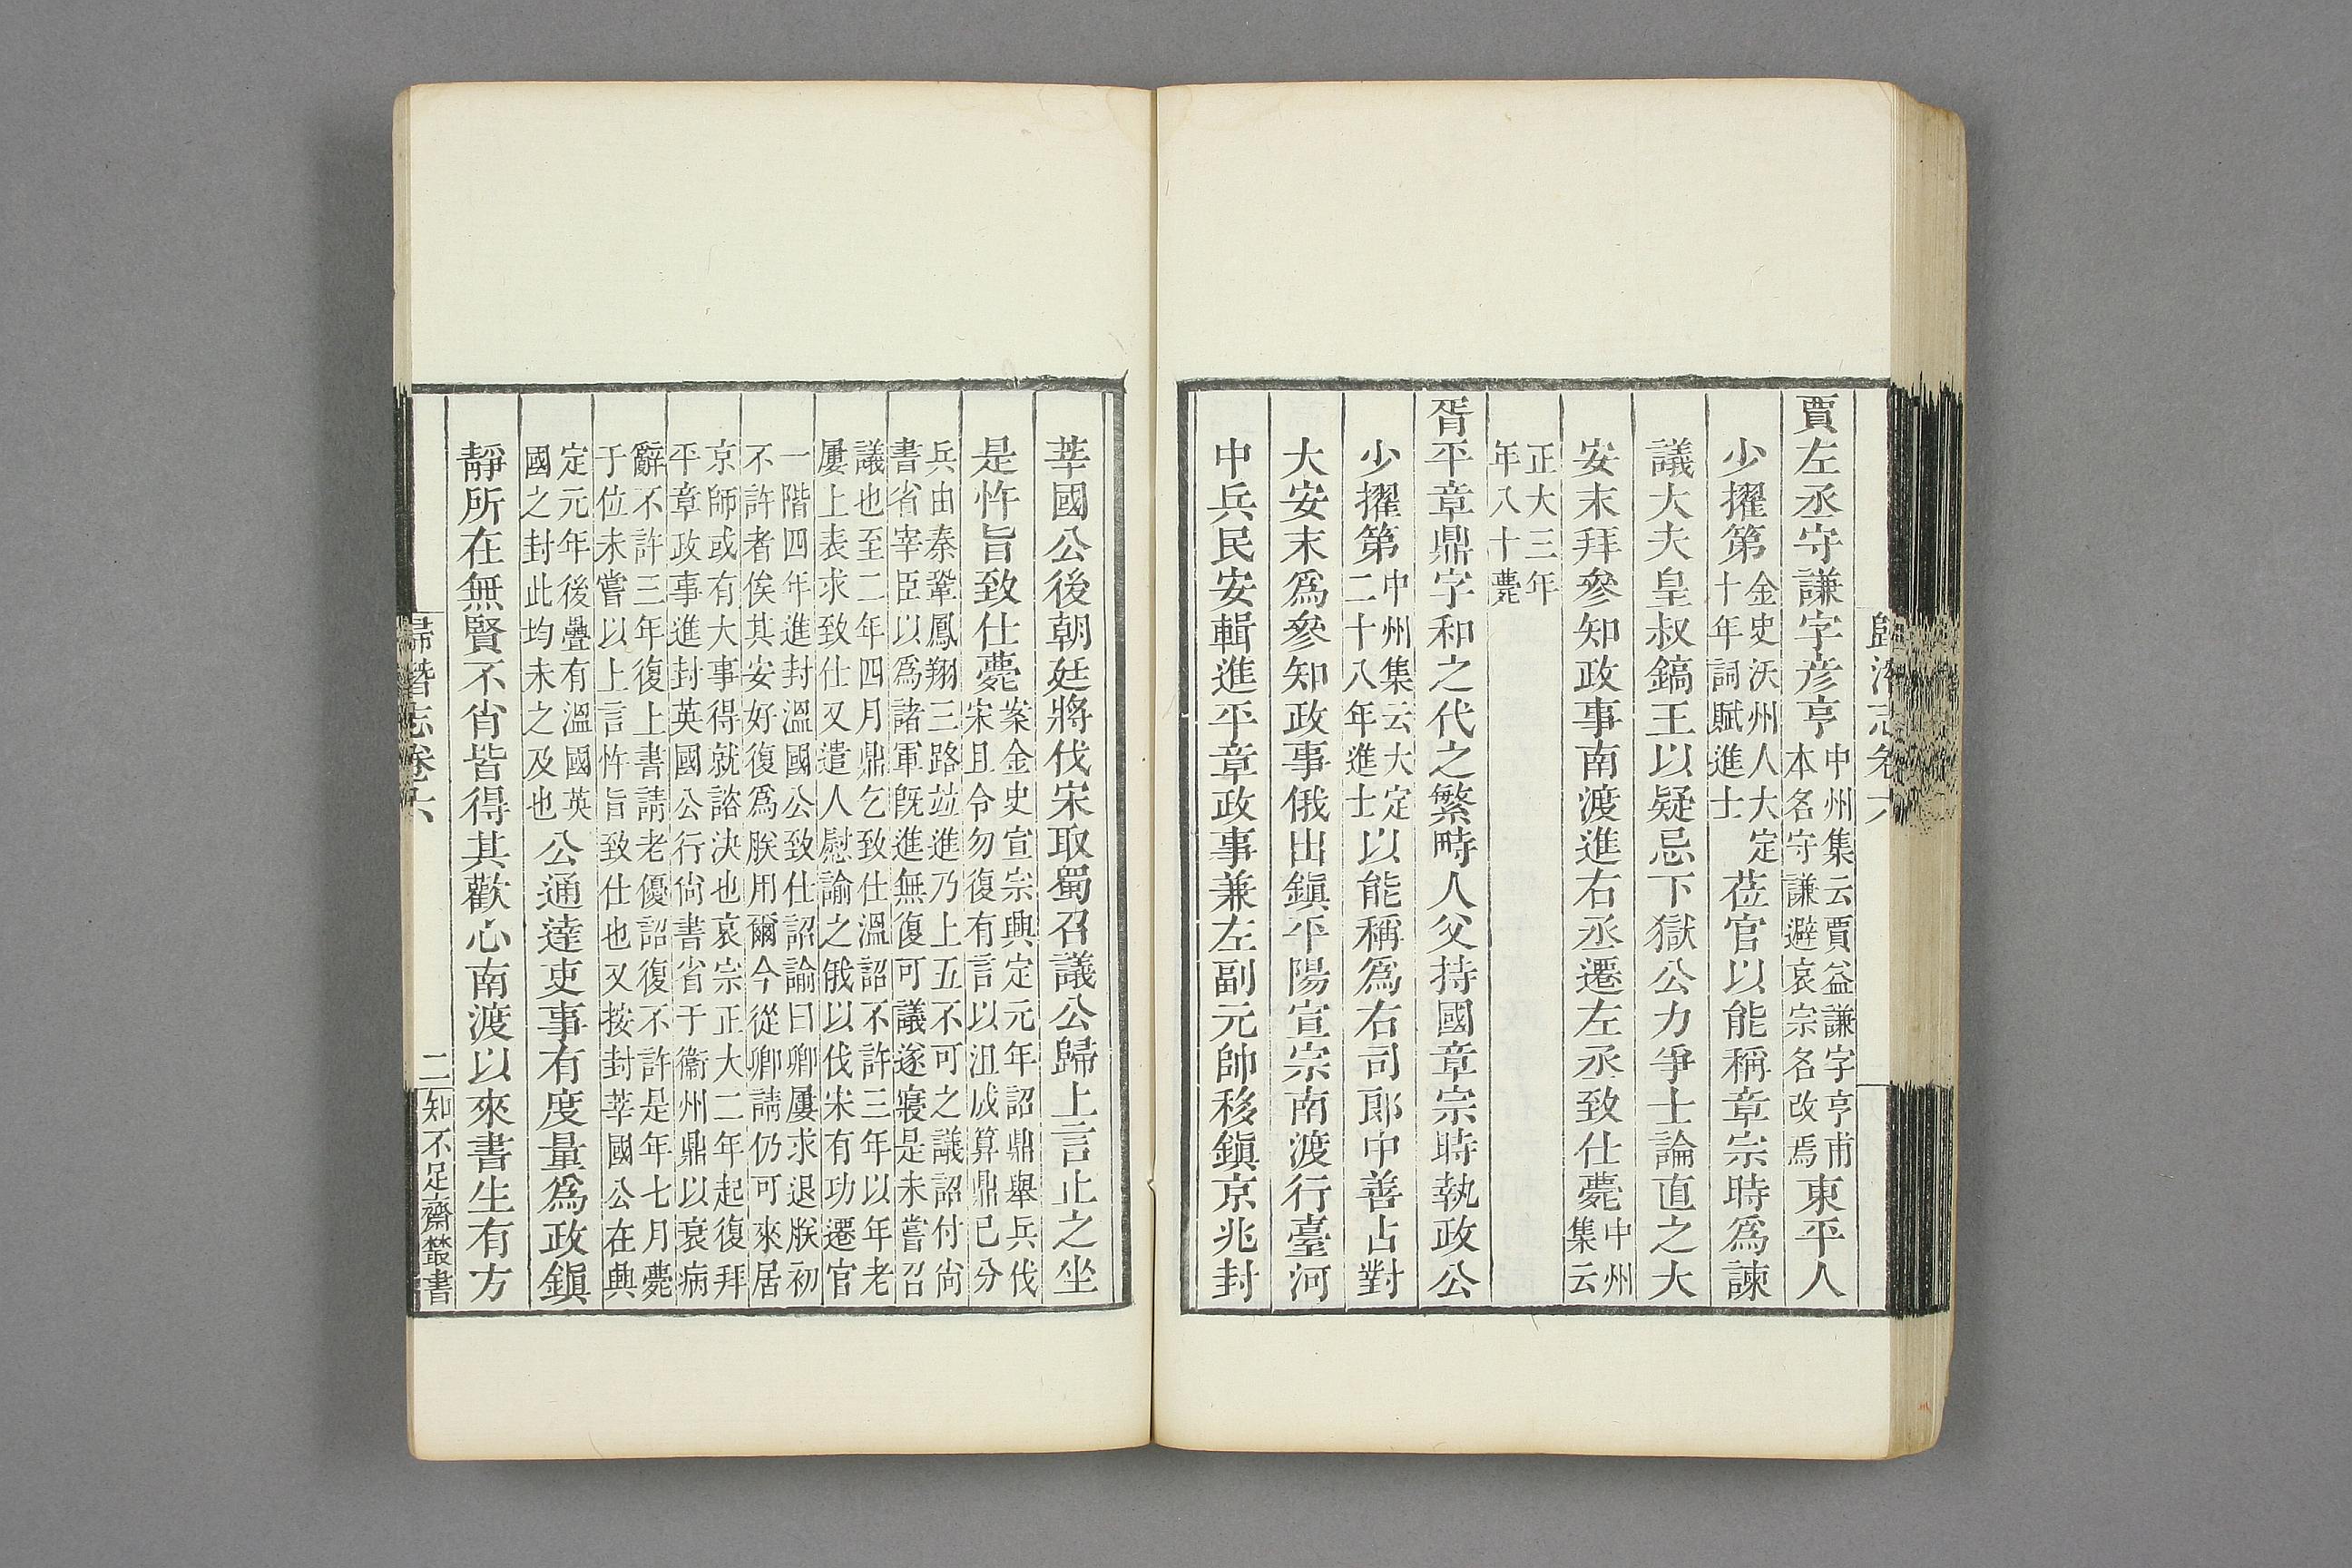 歸潛志卷六
賈左丞守謙字彥亨中州集云賈益謙字亨甫本名守謙避哀宗名改焉東平人
少擢第金史沃州人大定十年詞賦進士莅官以能稱章宗時爲諫
議大夫皇叔鎬王以疑忌下獄公力爭士論直之大
安末拜參知政事南渡進右丞遷左丞致仕薨中州集云
正大三年年八十薨
胥平章鼎字和之代之繁畤人父持國章宗時執政公
少擢第中州集云大定二十八年進士以能稱爲右司郞中善占對
大安末爲參知政事俄出鎭平陽宣宗南渡行臺河
中兵民安輯進平章政事兼左副元帥移鎭京兆封
莘國公後朝廷將伐宋取蜀召議公歸上言止之坐
是忤旨致仕薨案金史宣宗興定元年詔鼎舉兵伐宋且令勿復有言以沮成算鼎已分
兵由秦鞏鳳翔三路竝進乃上五不可之議詔付尙書省宰臣以爲諸軍旣進無復可議遂寢是未嘗召
議也至二年四月鼎乞致仕溫詔不許三年以年老屢上表求致仕又遣人慰諭之俄以伐宋有功遷官
一階四年進封溫國公致仕詔諭曰卿屢求退朕初不許者俟其安好復爲朕用爾今從卿請仍可來居
京師或有大事得就諮決也哀宗正大二年起復拜平章政事進封英國公行尙書省于衞州鼎以衰病
辭不許三年復上書請老優詔復不許是年七月薨于位未嘗以上言忤旨致仕也又按封莘國公在興
定元年後疊有溫國英國之封此均未之及也公通達吏事有度量爲政鎭
靜所在無賢不肖皆得其歡心南渡以來書生有方
歸潛志卷六
二
知不足齋叢書